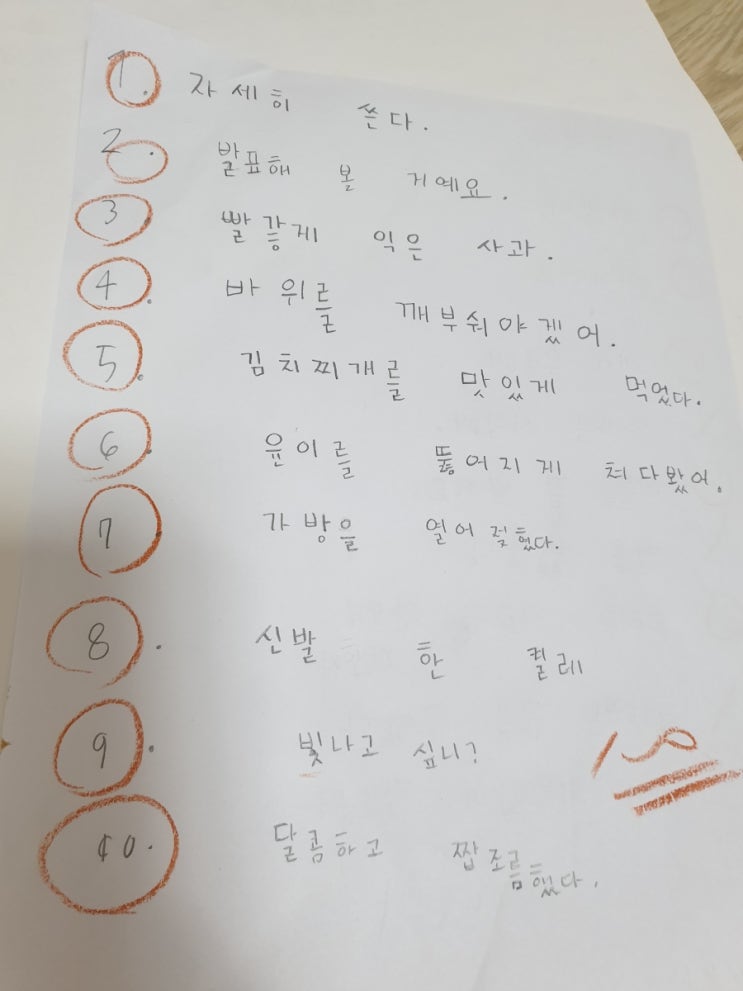 1. 자세히 쓴다.
2. 발표해 볼 거예요.
3 빨갛게 익은 사과.
4. 바위를 깨부숴야겠어.
5. 김치찌개를 맛있게 먹었다.
6. 윤이를 뚫어지게 쳐다봤어.
7 가방을 열어젖혔다.
8. 신발 한 켤레
9. 빛나고 싶니?
10. 달콤하고 짭조름했다.
100